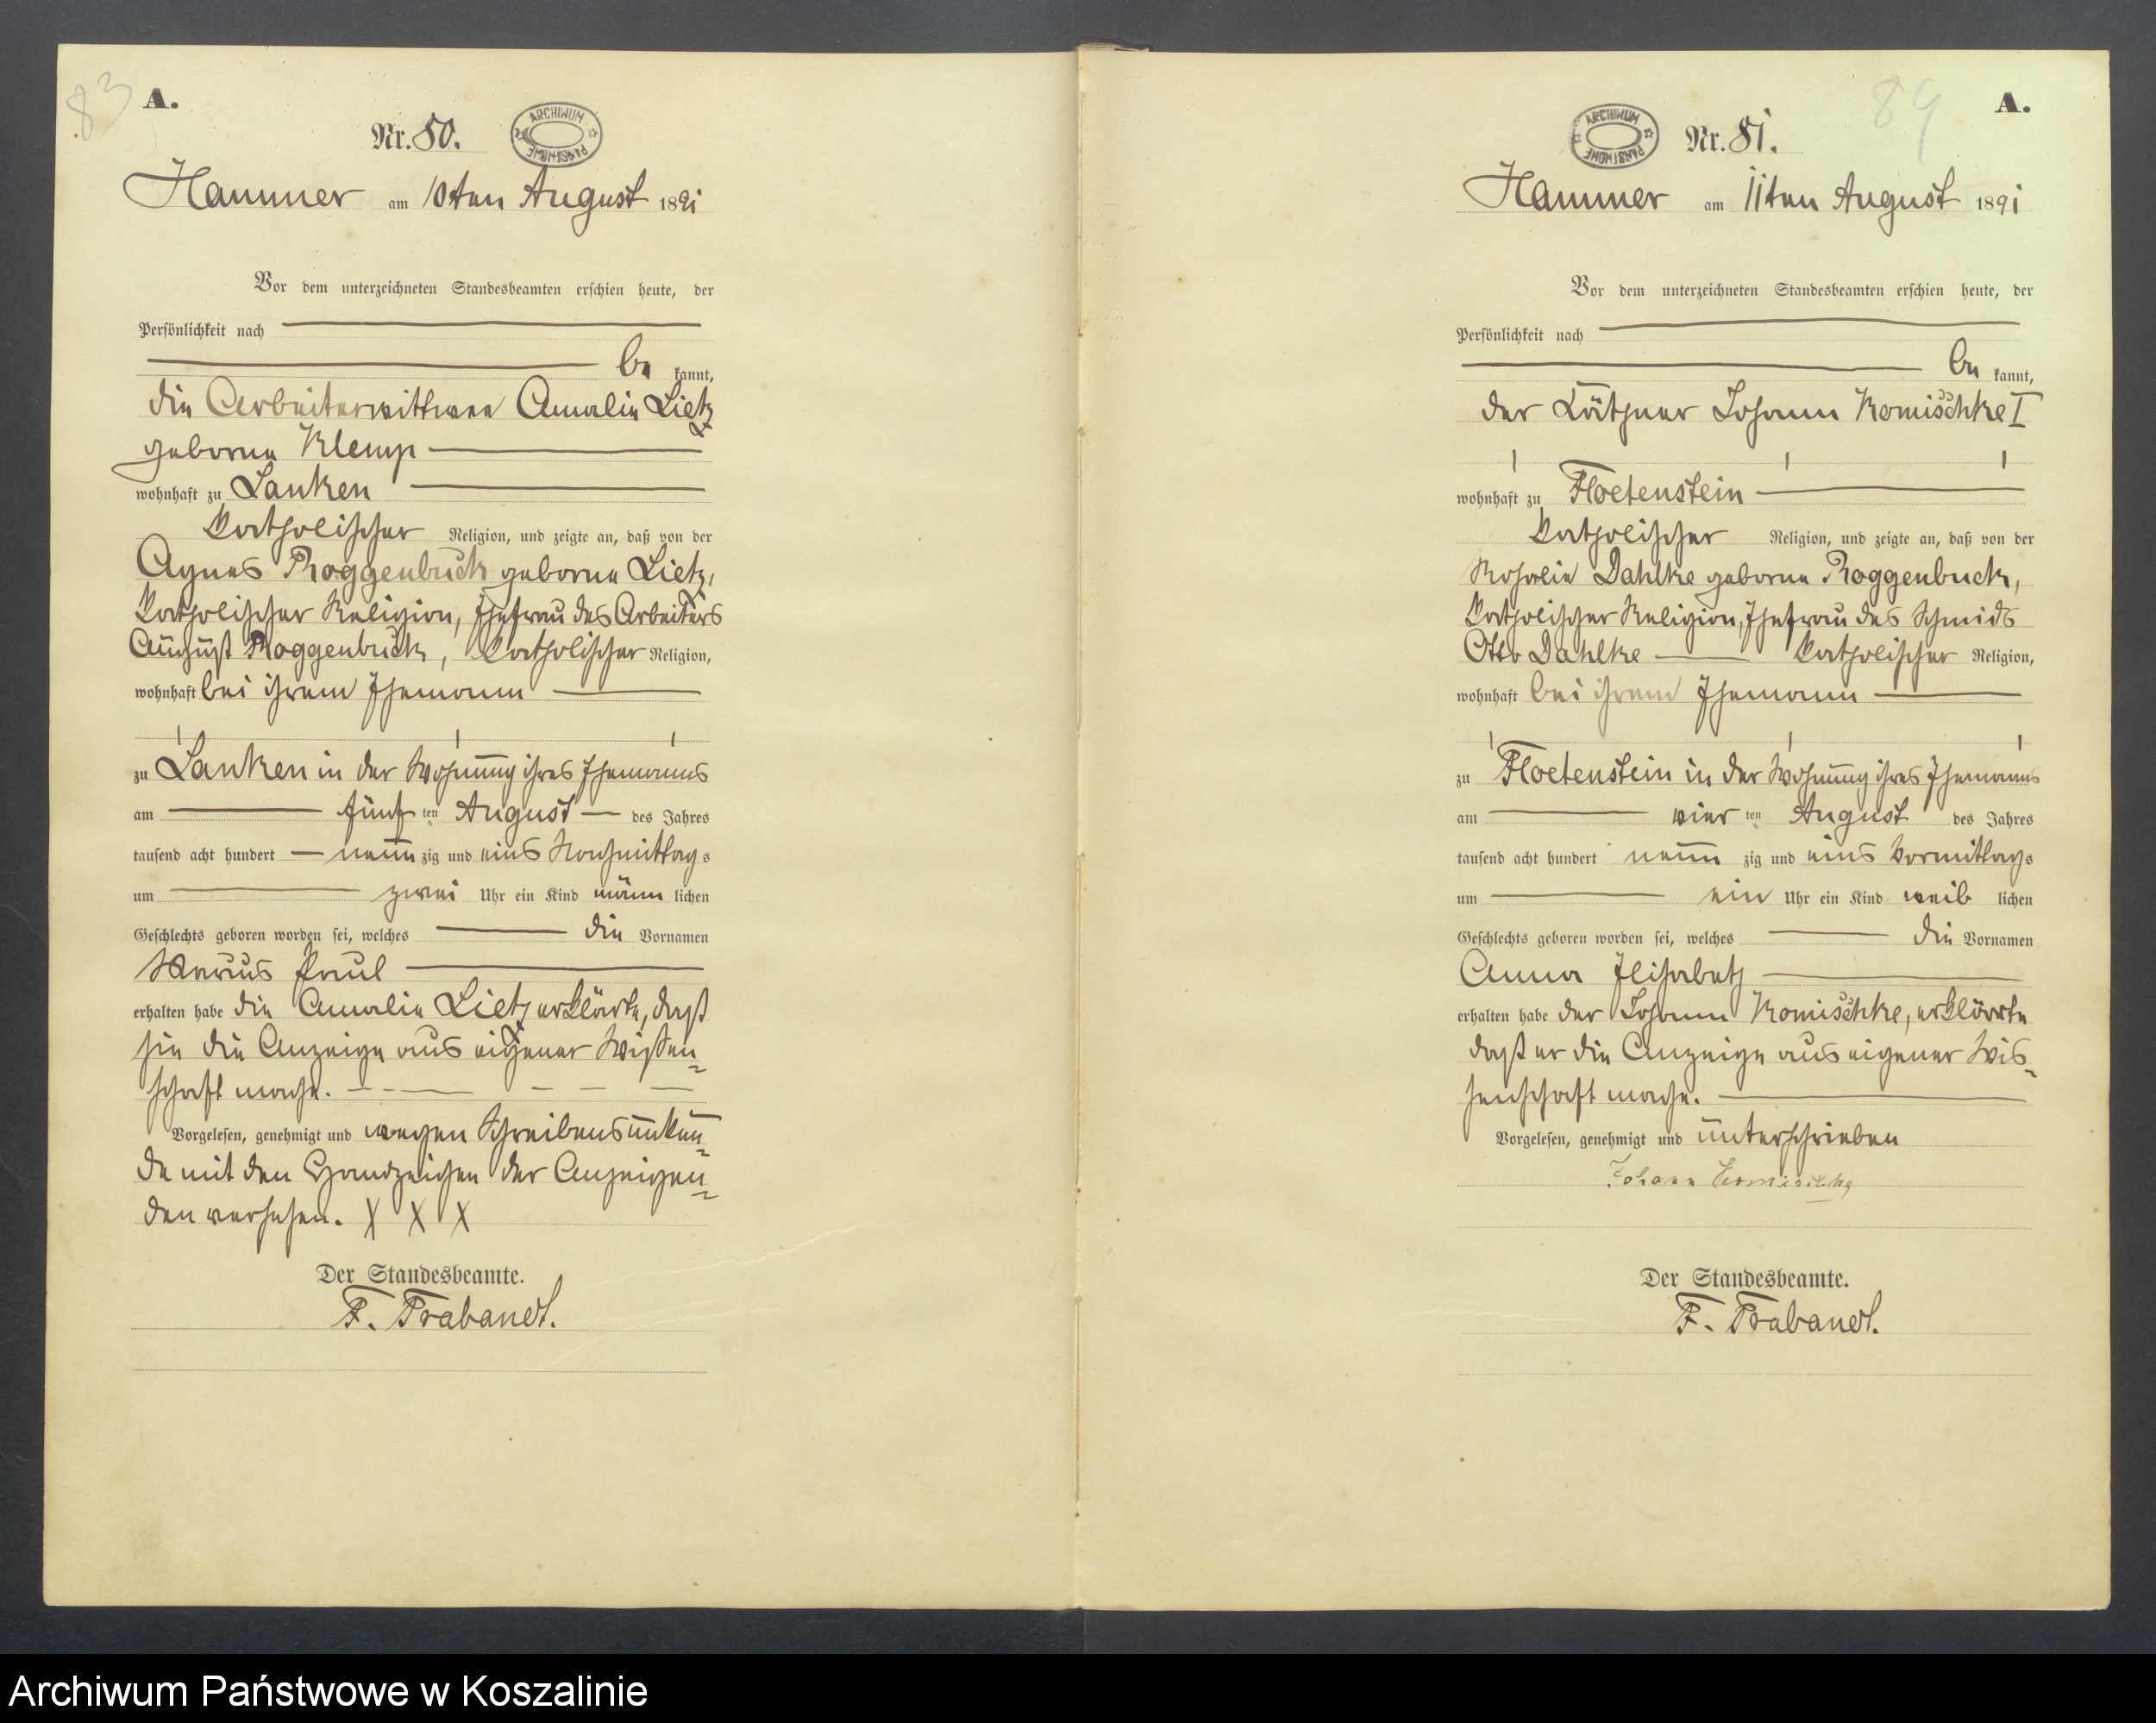 83
A.
Nr. 80.
ARCHIWUM PAŃSTWOWE
Hammer am 10ten August 1891
Vor dem unterzeichneten Standesbeamten erschien heute, der
Persönlichkeit nach
be kannt,
die Arbeiterwittwee Amalie Lietz
geborne Klemp
wohnhaft zu Lanken
katholischer Religion, und zeigte an, daß von der
Agnes Roggenbuck geborne Lietz,
katholischer Religion, Ehefrau des Arbeiters
August Roggenbuck, katholischer Religion,
wohnhaft bei ihrem Ehemann
zu Lanken in der Wohnung ihres Ehemanns
am fünf ten August des Jahres
tausend acht hundert neun zig und eins Nachmittags
um zwei Uhr ein Kind männ lichen
Geschlechts geboren worden sei, welches die Vornamen
Paul
erhalten habe die Amalie Lietz erklärte, daß
sie die Anzeige aus eigener Wißen-
schaft mache.
Vorgelesen, genehmigt und wegen Schreibensunkun-
de mit den Handzeichen der Anzeigen-
den versehen. X X X
Der Standesbeamte.
F. Trabandt.
89
A.
ARCHIWUM PAŃSTWOWE
Nr. 81.
Hammer am 11ten August 1891
Vor dem unterzeichneten Standesbeamten erschien heute, der
Persönlichkeit nach
be kannt,
der Käthner Johann Komischke I
wohnhaft zu Floetenstein
katholischer Religion, und zeigte an, daß von der
Rosalie Dahlke geborne Roggenbuck,
katholischer Religion, Ehefrau des Schmids
Otto Dahlke katholischer Religion,
wohnhaft bei ihrem Ehemann
zu Floetenstein in der Wohnung ihres Ehemanns
am vier ten August des Jahres
tausend acht hundert neun zig und eins Vormittags
um ein Uhr ein Kind weib lichen
Geschlechts geboren worden sei, welches die Vornamen
Anna Elisabeth
erhalten habe der Johann Komischke, erklärte
daß er die Anzeige aus eigener Wis-
senschaft mache.
Vorgelesen, genehmigt und unterschrieben
Johann Komischke
Der Standesbeamte.
F. Trabandt.
Archiwum Państwowe w Koszalinie